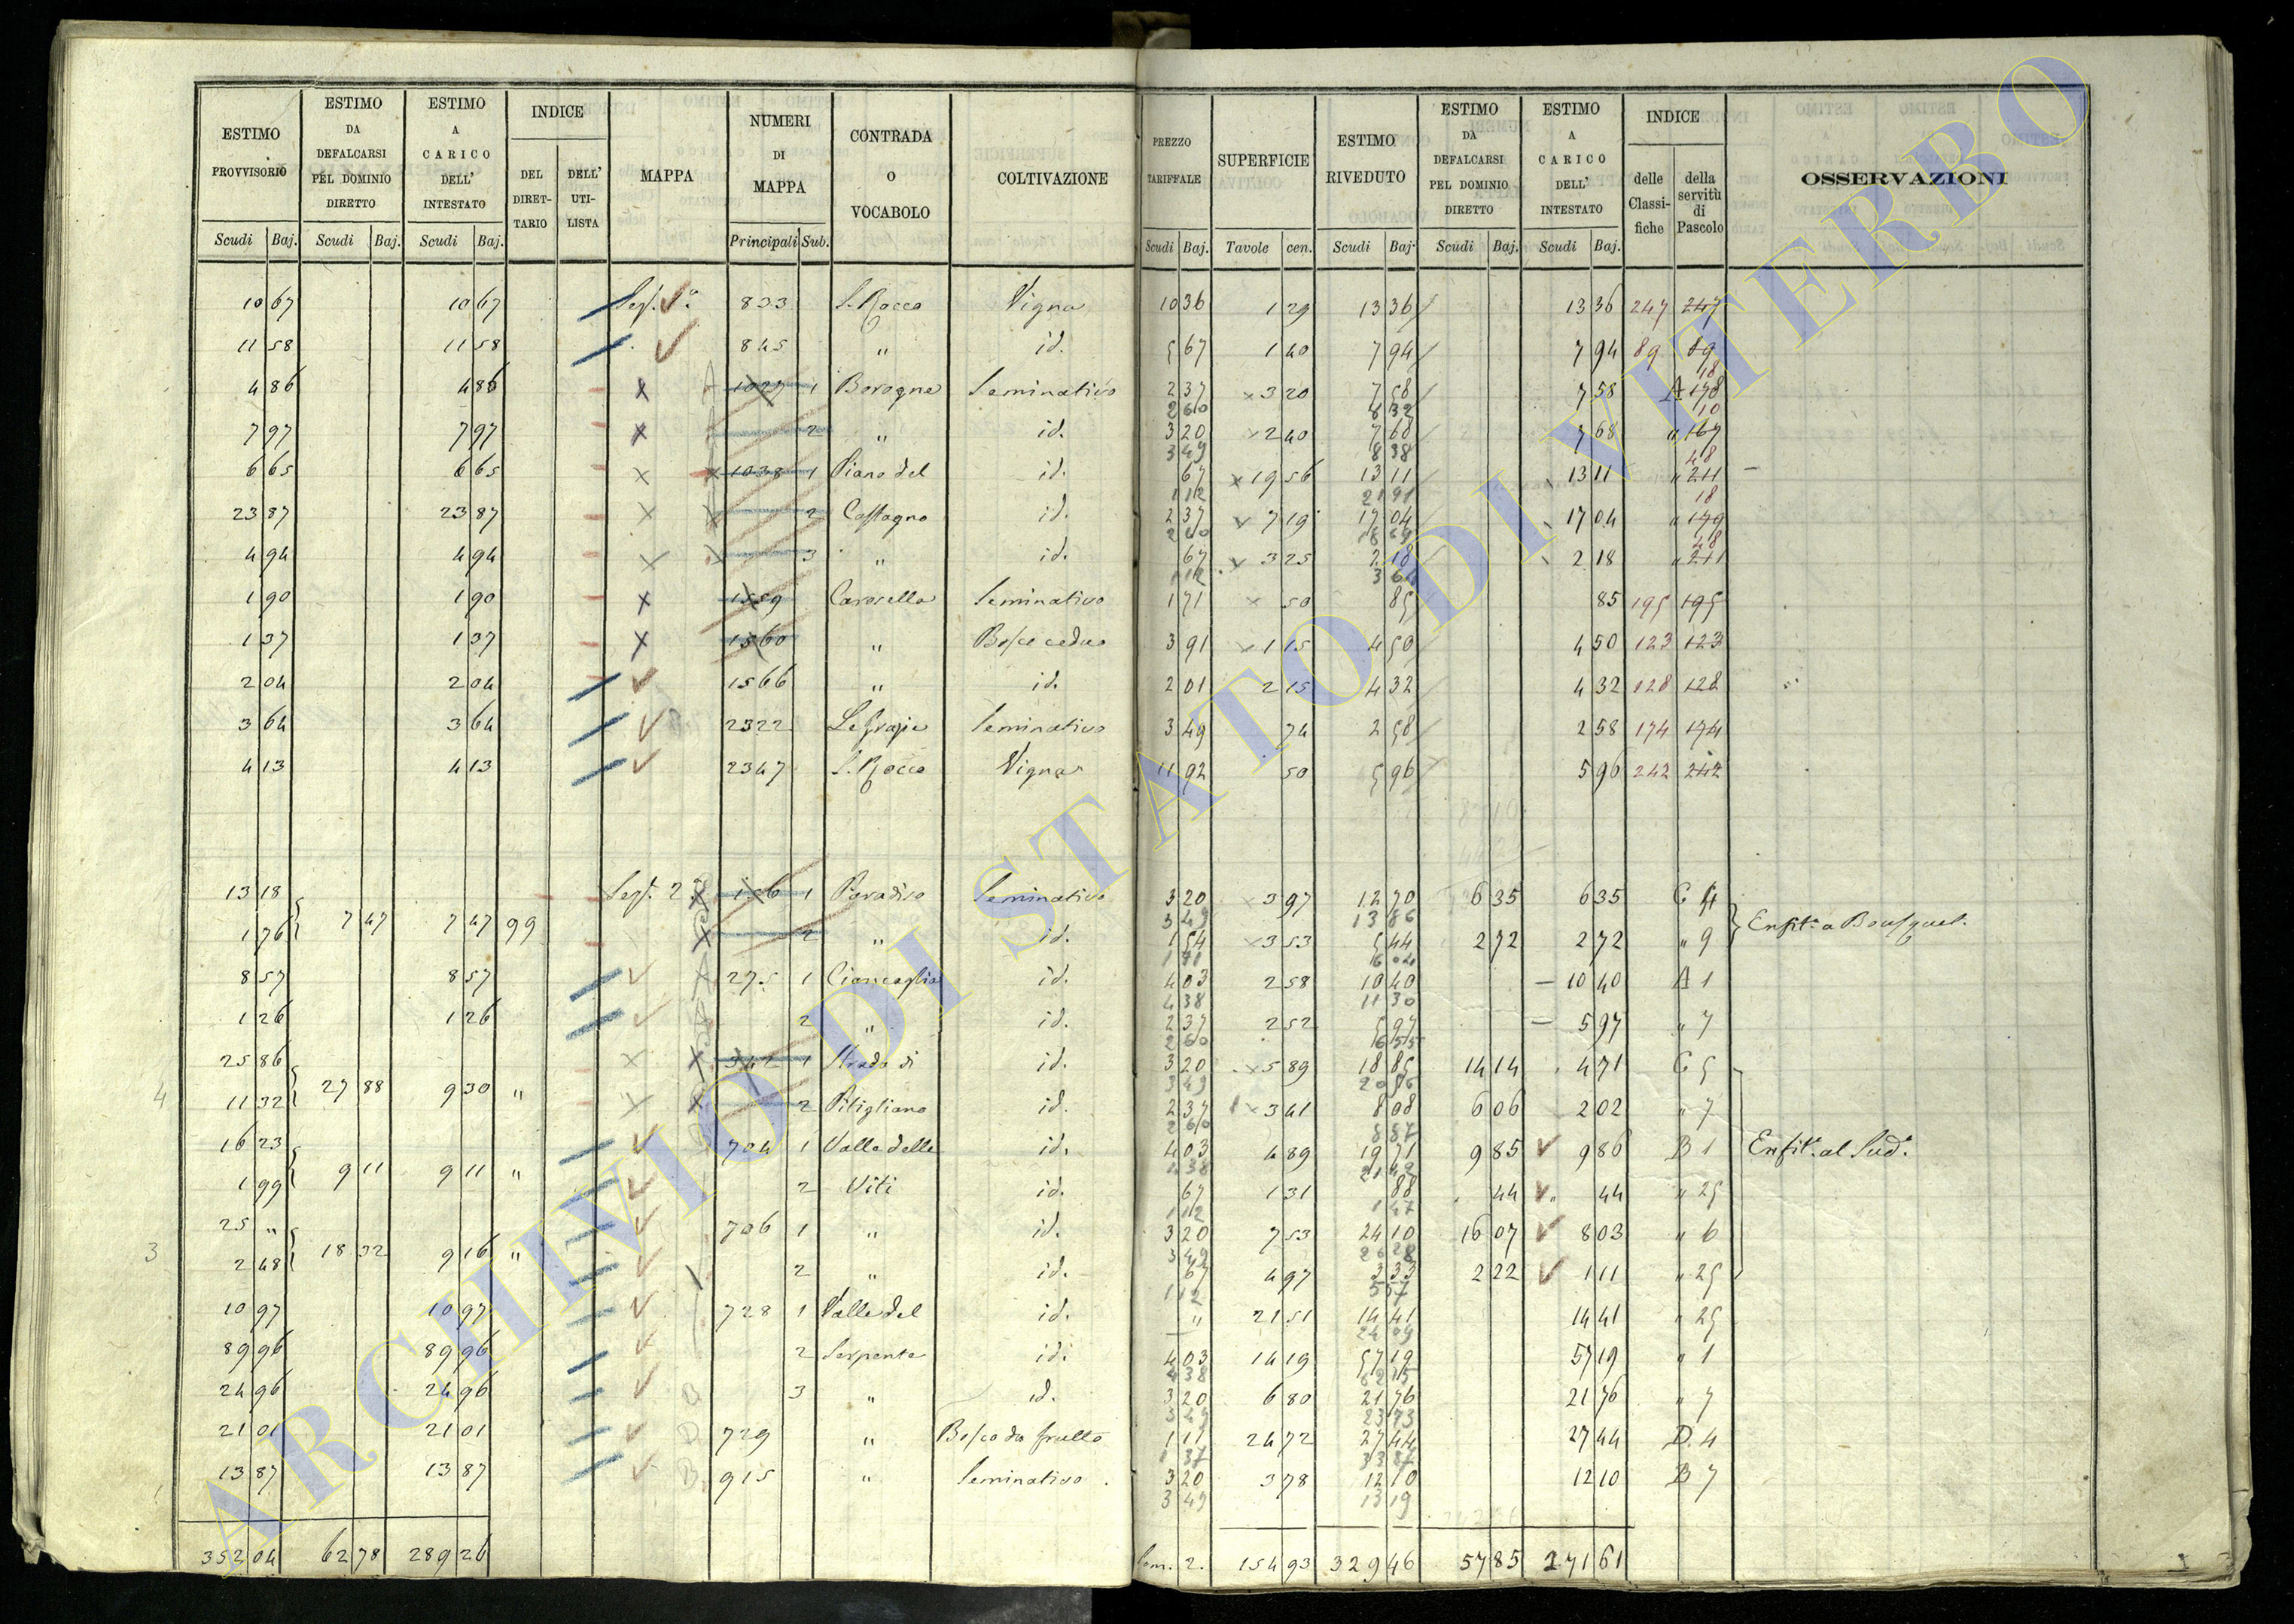 ESTIMO PROVVISORIO | ESTIMO DA DEFALCARSI PEL DOMINIO DIRETTO | ESTIMO A CARICO DELL' INTESTATO | INDICE DEL DIRETTARIO | DELL' UTILISTA | MAPPA | NUMERI DI MAPPA | CONTRADA O VOCABOLO | COLTIVAZIONE | PREZZO TARIFFALE | SUPERFICIE | ESTIMO RIVEDUTO | ESTIMO DA DEFALCARSI PEL DOMINIO DIRETTO | ESTIMO A CARICO DELL' INTESTATO | INDICE delle Classifiche | della servitù di Pascolo | OSSERVAZIONI
Scudi | Baj. | Scudi | Baj. | Scudi | Baj. | Principali | Sub. | Scudi | Baj. | Tavole | cen. | Scudi | Baj. | Scudi | Baj. | Scudi | Baj.
10 67 | 10 67 | Sez. 1a | 833 | S. Rocco | Vigna | 10 36 | 1 29 | 13 36 | 13 36 | 247 | 247
11 58 | 11 58 | 845 | " | id. | 5 67 | 1 40 | 7 94 | 7 94 | 89 | 89
4 86 | 4 86 | 1 | Borogna | Seminativo | 2 37 | 3 20 | 7 58 | 7 58 | A 178 18
2 60 | 8 32
7 97 | 7 97 | 2 | " | id. | 3 20 | 2 40 | 7 68 | 7 68 | " 167 10
3 49 | 8 38
6 65 | 6 65 | 1038 | 1 | Piano del | id. | 67 | 19 56 | 13 11 | 13 11 | " 211 48
1 12 | 21 91
23 87 | 23 87 | 2 | Castagno | id. | 2 37 | 7 19 | 17 04 | 17 04 | " 179 18
2 60 | 18 69
4 94 | 4 94 | 3 | " | id. | 67 | 3 25 | 2 18 | 2 18 | " 211 48
1 12 | 3 64
1 90 | 1 90 | 1559 | Carosella | Seminativo | 1 71 | 50 | 85 | 85 | 195 | 195
1 37 | 1 37 | 1560 | " | Bosco ceduo | 3 91 | 1 15 | 4 50 | 4 50 | 123 | 123
2 04 | 2 04 | 1566 | " | id. | 2 01 | 2 15 | 4 32 | 4 32 | 128 | 128
3 64 | 3 64 | 2322 | Le Grazie | Seminativo | 3 49 | 74 | 2 58 | 2 58 | 174 | 174
4 13 | 4 13 | 2347 | S. Rocco | Vigna | 11 92 | 50 | 5 96 | 5 96 | 242 | 242
13 18 | Sez. 2a | 156 | 1 | Paradiso | Seminativo | 3 20 | 3 97 | 12 70 | 6 35 | 6 35 | C 4
7 47 | 7 47 | 99 | 3 49 | 13 86 | Enfit. a Bousquet.
1 76 | 2 | " | id. | 1 54 | 3 53 | 5 44 | 2 72 | 2 72 | " 9
1 71 | 6 04
8 57 | 8 57 | 275 | 1 | Ciancaglia | id. | 4 03 | 2 58 | 10 40 | 10 40 | A 1
4 38 | 11 30
1 26 | 1 26 | 2 | " | id. | 2 37 | 2 52 | 5 97 | 5 97 | " 7
2 60 | 6 55
25 86 | 342 | 1 | Strada di | id. | 3 20 | 5 89 | 18 85 | 14 14 | 4 71 | C 5
4 | 27 88 | 9 30 | " | 3 49 | 20 56
11 32 | 2 | Pitigliano | id. | 2 37 | 3 41 | 8 08 | 6 06 | 2 02 | " 7
2 60 | 8 87
16 23 | 704 | 1 | Valle delle | id. | 4 03 | 4 89 | 19 71 | 9 85 | 9 86 | B 1 | Enfit. al Sud.
9 11 | 9 11 | " | 4 38 | 21 42
1 99 | 2 | Viti | id. | 67 | 1 31 | 88 | 44 | 44 | " 25
1 12 | 1 47
25 " | 706 | 1 | " | id. | 3 20 | 7 53 | 24 10 | 16 07 | 8 03 | " 6
3 | 18 32 | 9 16 | " | 3 49 | 26 28
2 48 | 2 | " | id. | 67 | 4 97 | 3 33 | 2 22 | 1 11 | " 25
1 12 | 5 57
10 97 | 10 97 | 728 | 1 | Valle del | id. | " | 21 51 | 14 41 | 14 41 | " 25
24 09
89 96 | 89 96 | 2 | Serpente | id. | 4 03 | 14 19 | 57 19 | 57 19 | " 1
4 38 | 62 15
24 96 | 24 96 | 3 | " | id. | 3 20 | 6 80 | 21 76 | 21 76 | " 7
3 49 | 23 73
21 01 | 21 01 | 729 | " | Bosco da frutto | 1 11 | 24 72 | 27 44 | 27 44 | D. 4
1 37 | 33 87
13 87 | 13 87 | 915 | " | Seminativo | 3 20 | 3 78 | 12 10 | 12 10 | B 7
3 49 | 13 19
352 04 | 62 78 | 289 26 | Som. 2. | 154 93 | 329 46 | 57 85 | 271 61
ARCHIVIO DI STATO DI VITERBO